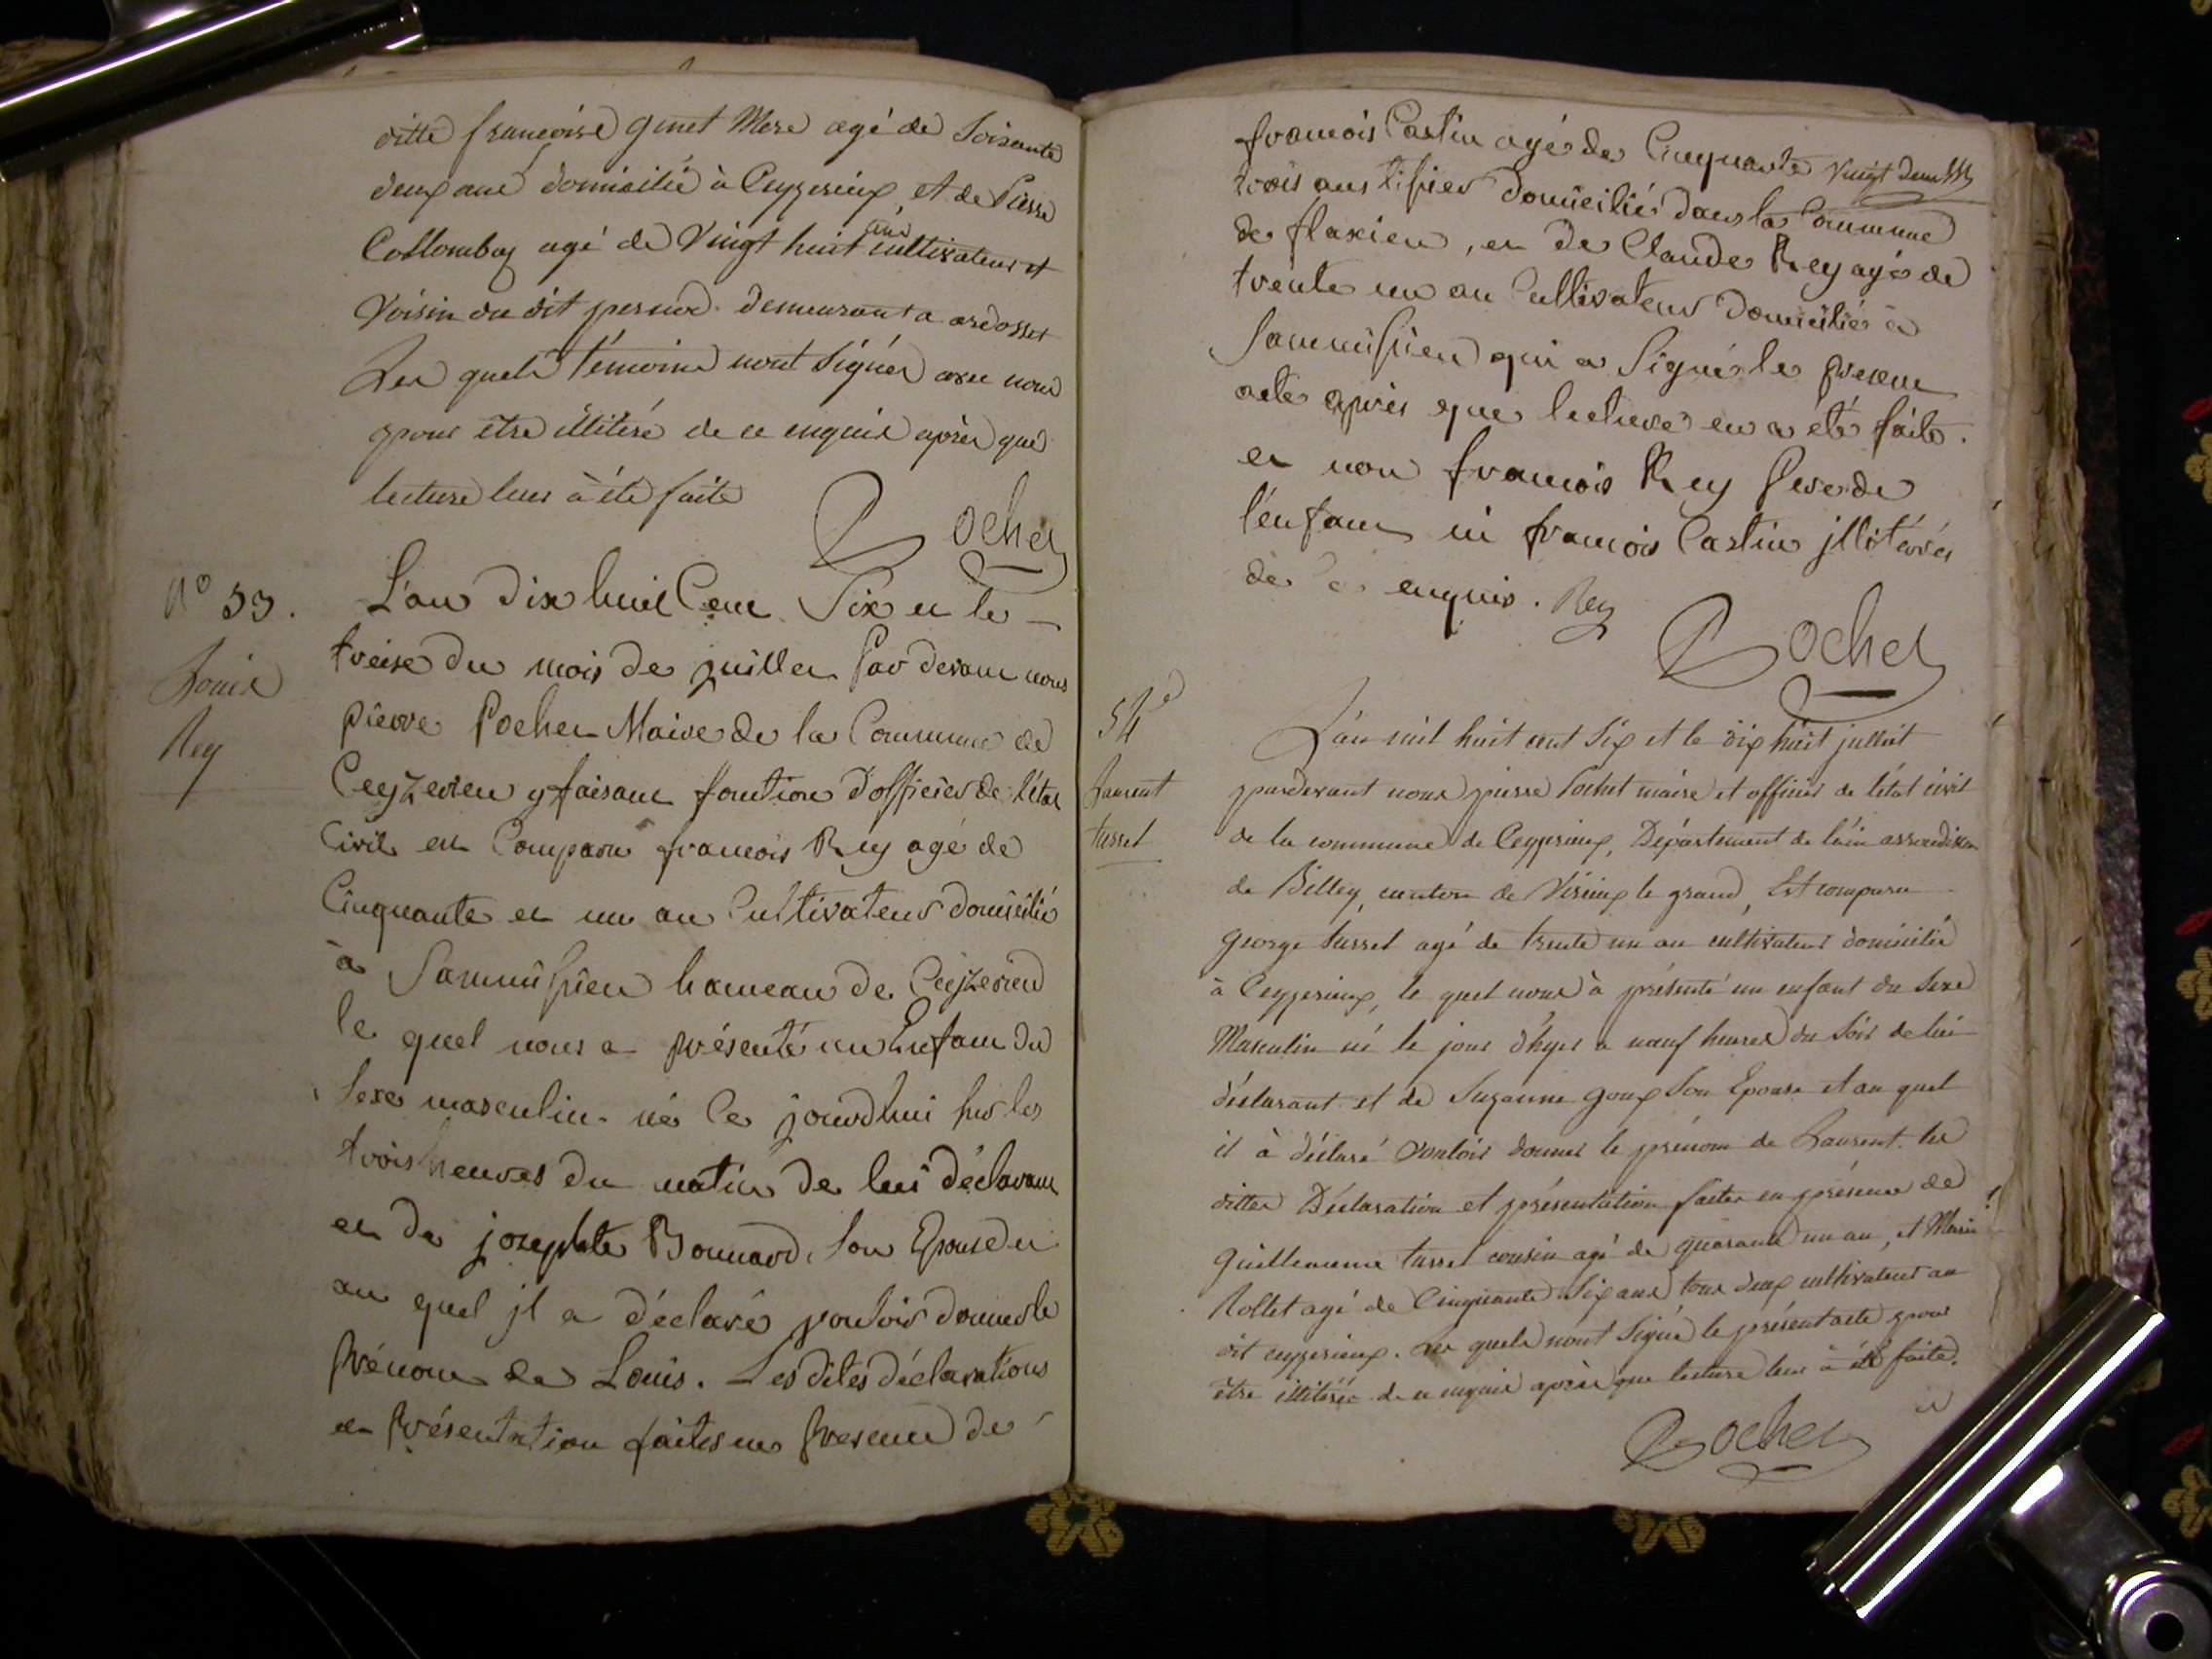 ditte francoise ginet Mere agé de Soisante
deux ans domicilié à Ceyzerieux, et de Pierre
Collombay agé de Vingt huit ans cultivateur et
Voisin du dit domeurant a ardosset
Les quels témoins nont Signés avec nous
pour être illitéré de ce enquis après que
lecture leur à été faite
Pochet
N° 53.
Louis
Rey
L'an dix huit Cent Six et le
treise du mois de juillet Par devant nous
pierre Pochet Maire de la Commune de
Ceyzerieu y faisant fontion d'officier de l'état
Civil est Comparu francois Rey agé de
Cinquante et un an Cultivateur domicilié
à hameau de Ceyzerieu
le quel nous a présenté un Enfant du
Sexe masculin né Ce jourdhui sur les
trois heures du matin de lui déclarant
et de josephte Bonnard, Son Epouse et
au quel jl a déclaré vouloir donner le
Prénom de Louis. Les dites déclarations
et Présentation faites en Presence de
Vingt deux
francois Castin agé de Cinquante
trois ans tissier domicilié dans la Commune
de flaxieu, et de Claude Rey agé de
trente un an Cultivateur domicilié à
qui a Signé le present
acte après que lecture en a été faite.
et non francois Rey Pere de
l'enfant ni francois Castin jllitérés
de ce enquis. Rey
Pochet
54e
Laurent
tusset
L'an mil huit cent Six et le dix huit julliet
pardevant nous pierre Pochet maire et officier de l'état civil
de la commune de Ceyzerieux, Département de l'ain
de Billey, canton de Virieux le grand, Est comparu
george tusset agé de trente un an cultivateur domicilié
à Ceyzerieux, le quel nous à présenté un enfant du Sexe
Masculin né le jour d'hyer à neuf heures du Soir de lui
déclarant et de Suzanne goux Son Epouse et au quel
il à déclaré vouloir donner le prénom de Laurent. les
dittes Déclaration et présentation faites en présence de
guilleaume tusset cousin agé de quarante un an, et Marin
Rollet agé de Cinquante Six ans tous deux cultivateur au
dit ceyzerieux. Les quels nont Signé le présent acte pour
être illitéré de ce enquis après que lecture leur à été faite.
Pochet